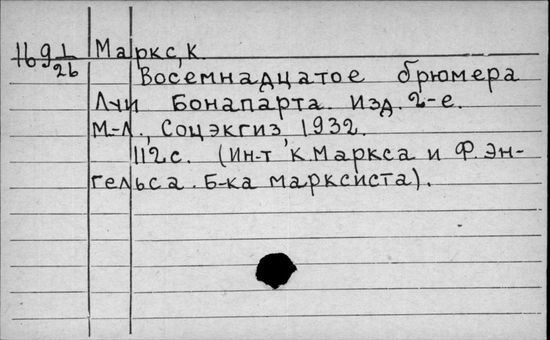 1691/26 Маркс, К.
Восемнадцатое брюмера
Луи Бонапарта. Изд. 2-е.
М.-Л., Соцэкгиз, 1932.
112 с. (Ин-т К. Маркса и Ф. Эн-
гельса. Б-ка марксиста).